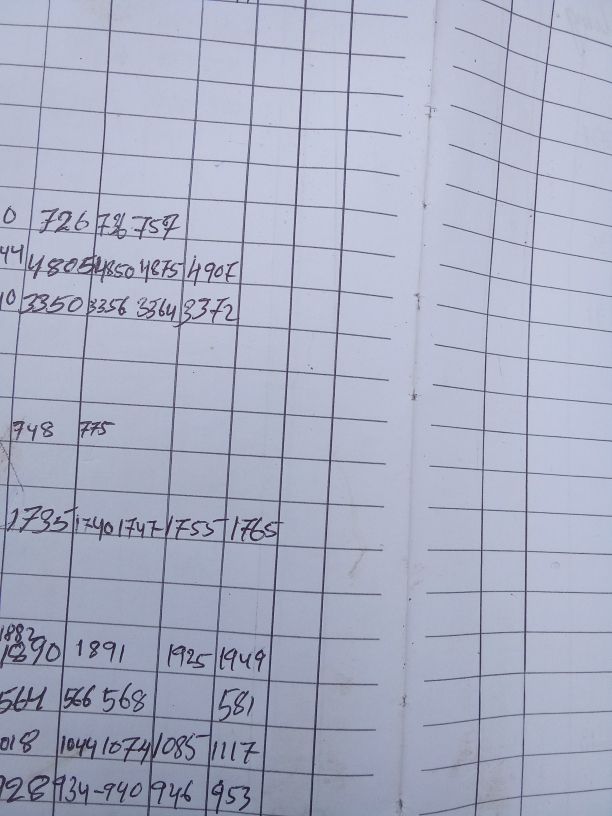 0 726 736 757
44 4805 4850 4875 4907
10 3350 3356 3364 3372
748 775
1735 1740 1747 1755 1765
1882
1890 1891 1925 1949
564 566 568 581
018 1044 1074 1085 1117
928 934-940 946 953